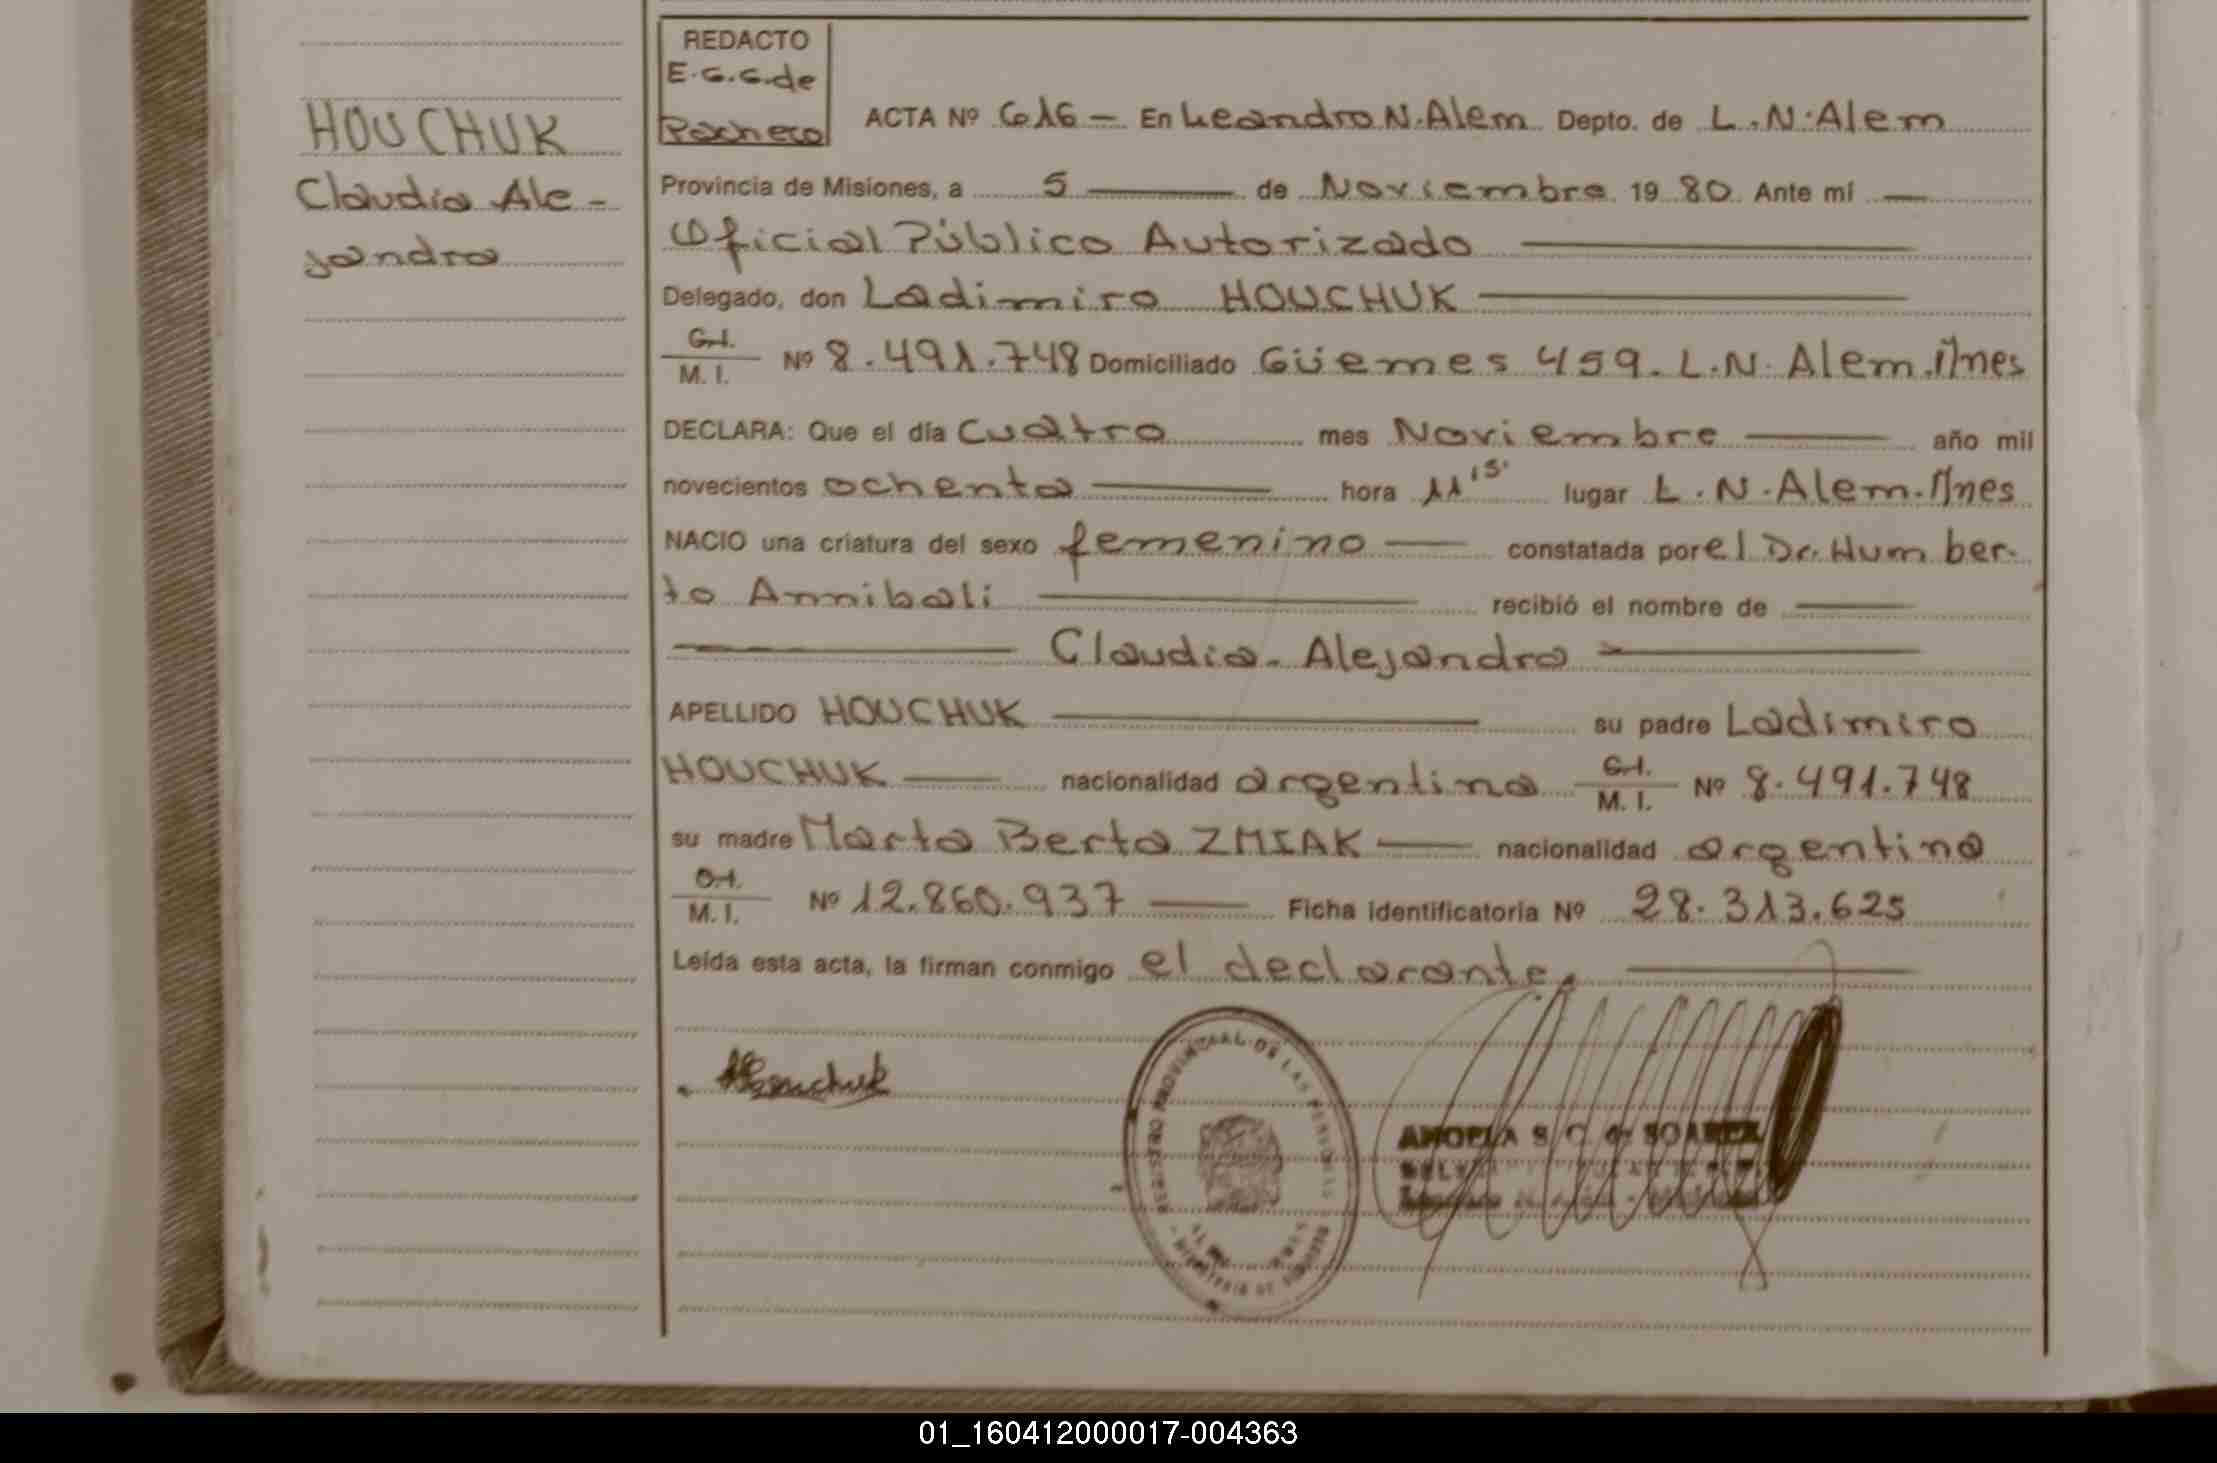 REDACTO
E.G.G.de
Pacheco
HOUCHUK
Claudia Ale-
jandra
ACTA Nº 616 — En Leandro N. Alem Depto. de L.N.Alem
Provincia de Misiones, a 5 — de Noviembre 1980 Ante mí —
Oficial Público Autorizado —
Delegado, don Ladimiro HOUCHUK —
C.I.
M. I. Nº 8.491.748 Domiciliado Güemes 459. L.N. Alem. Mnes
DECLARA: Que el día cuatro mes Noviembre — año mil
novecientos ochenta — hora 11 15. lugar L.N.Alem.Mnes
NACIO una criatura del sexo femenino — constatada por el Dr. Humber-
to Annibali — recibió el nombre de —
— Claudia Alejandra —
APELLIDO HOUCHUK — su padre Ladimiro
HOUCHUK — nacionalidad argentina C.I.
M. I. Nº 8.491.748
su madre Marta Berta ZMIAK — nacionalidad argentina
C.I.
M. I. Nº 12.860.937 — Ficha identificatoria Nº 28.313.625
Leída esta acta, la firman conmigo el declarante. —
Houchuk
PROVINCIAL DE LAS PERSONAS
MINISTERIO DE GOBIERNO
S. C. G. SOAREZ
01_160412000017-004363